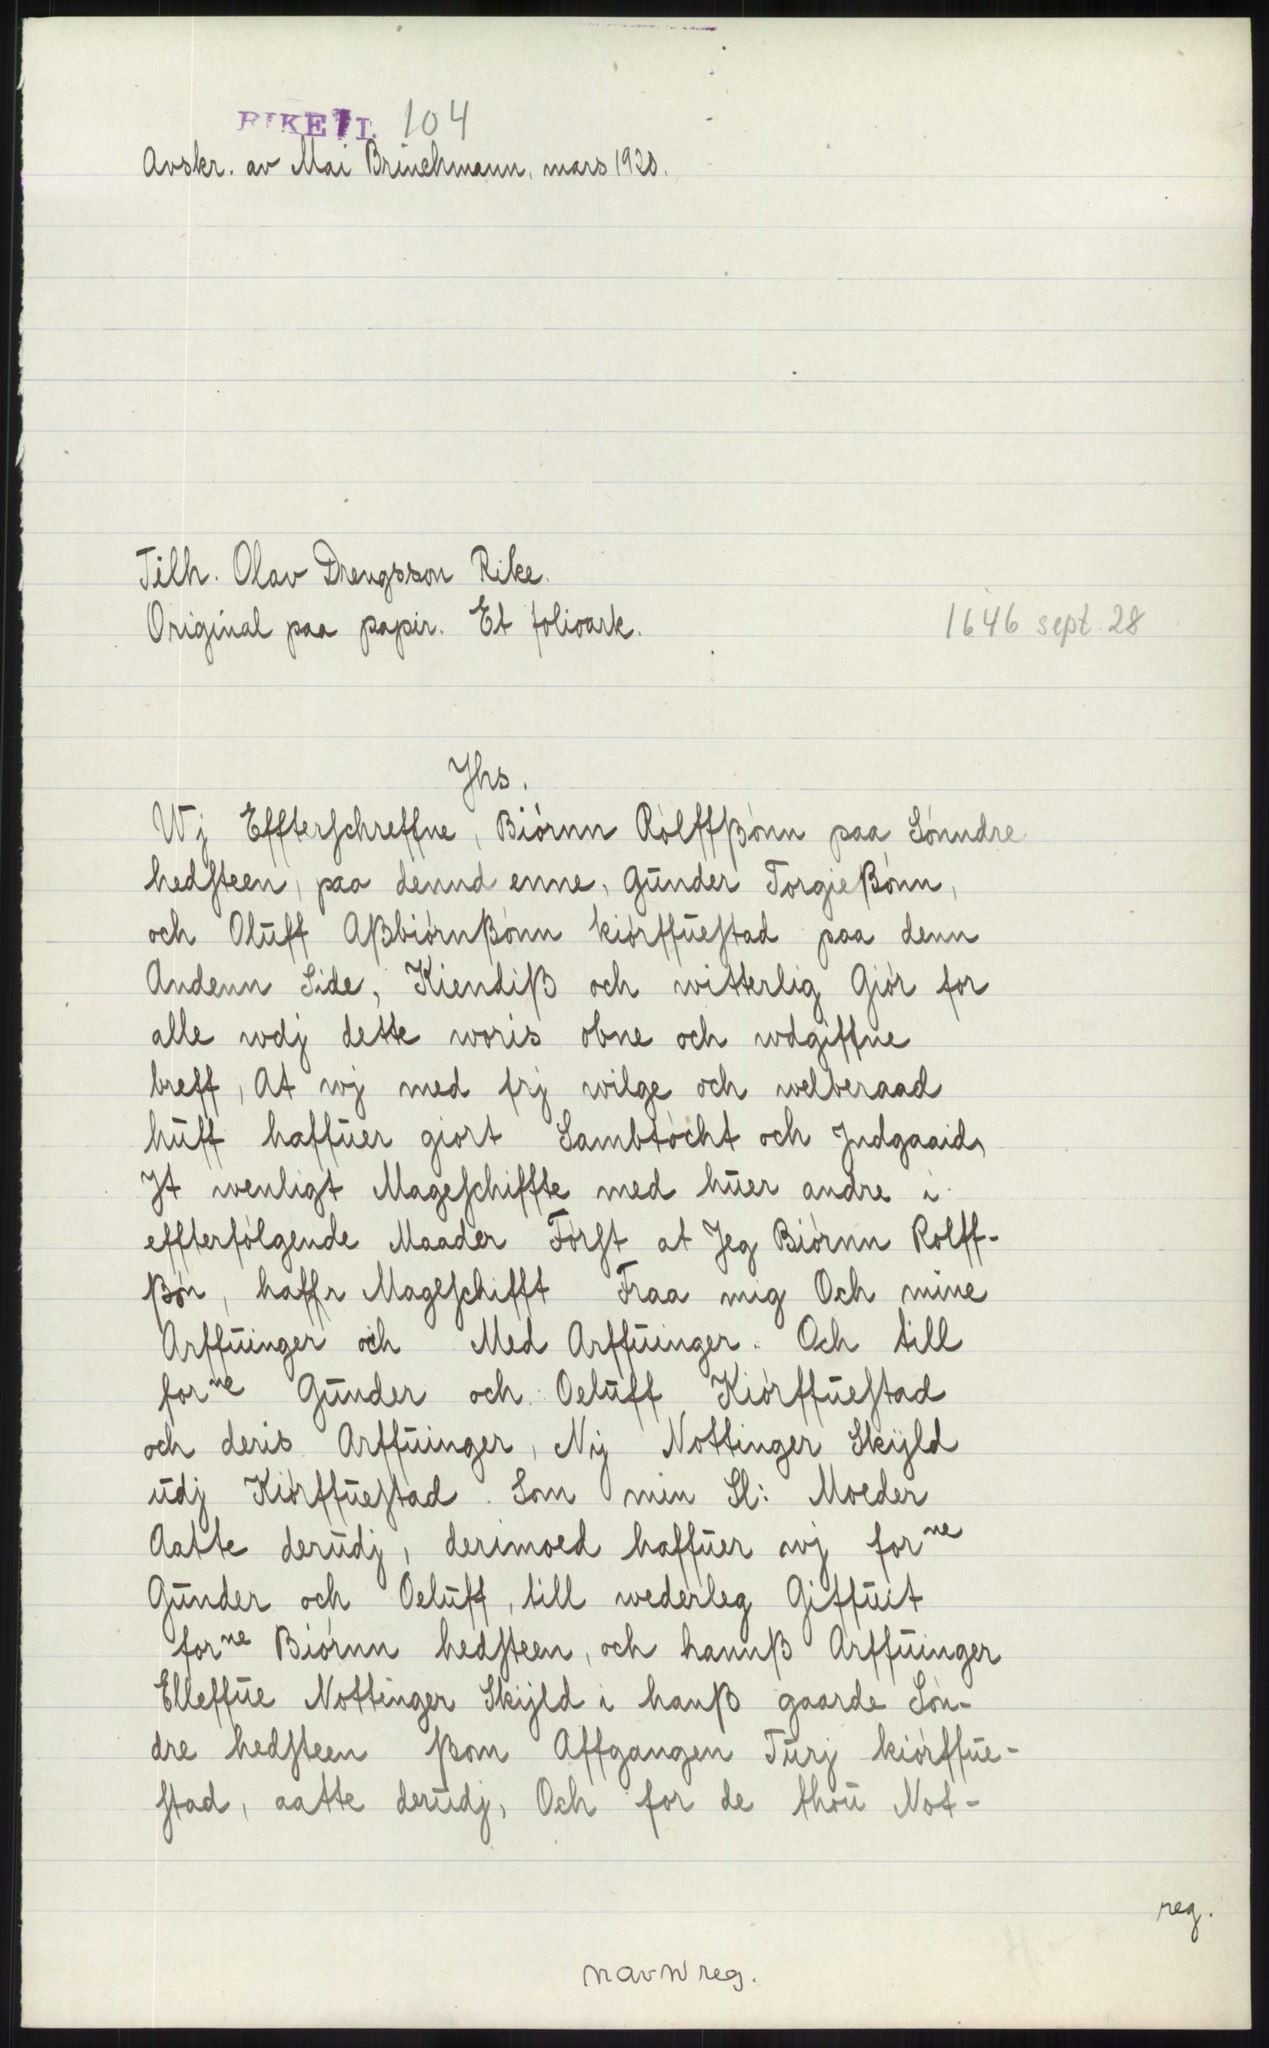 RIKE I. 104
Avskr. av Mai Brinchmann, mars 1920.
Tilh. Olav Drengsson Rike.
Original paa papir. Et folioark.
1646 sept. 28
Jhs.
Wj Effterschreffne, Biórnn Rólffßónn paa Sónndre
hedsteen, paa dennd enne, Gunder Torgießónn,
och Oluff Aßbiórnßónn kiórffuestad paa denn
Andenn Side, Kiendiß och witterlig Giór for
alle wdj dette woris obne och wdgiffne
breff, At wj med frj wilge och welberaad
huff haffuer giort Sambtócht och Jndgaaid,
Jt wenligt Mageschiffte med huer andre i
effterfólgende Maader Fórst at Jeg Biórnn Rolff-
ßón, haffr Mageschifft Fraa mig Och mine
Arffuinger och Med Arffuinger. Och till
forne Gunder och Oeluff Kiórffuestad
och deris Arffuinger, Nij Nottinger Skyld
udj Kiórffuestad. Som min Sl: Moeder
Aatte derudj, derimoed haffuer wj forne
Gunder och Oeluff, till wederleg Giffuit
forne Biórnn hedsteen, och hannß Arffuinger
Elleffue Nottinger Skyld i hanß gaarde Són-
dre hedsteen ßom Affgangen Turj kiórffue-
stad, aatte derudj, Och for de thou Not-
reg.
navnreg.